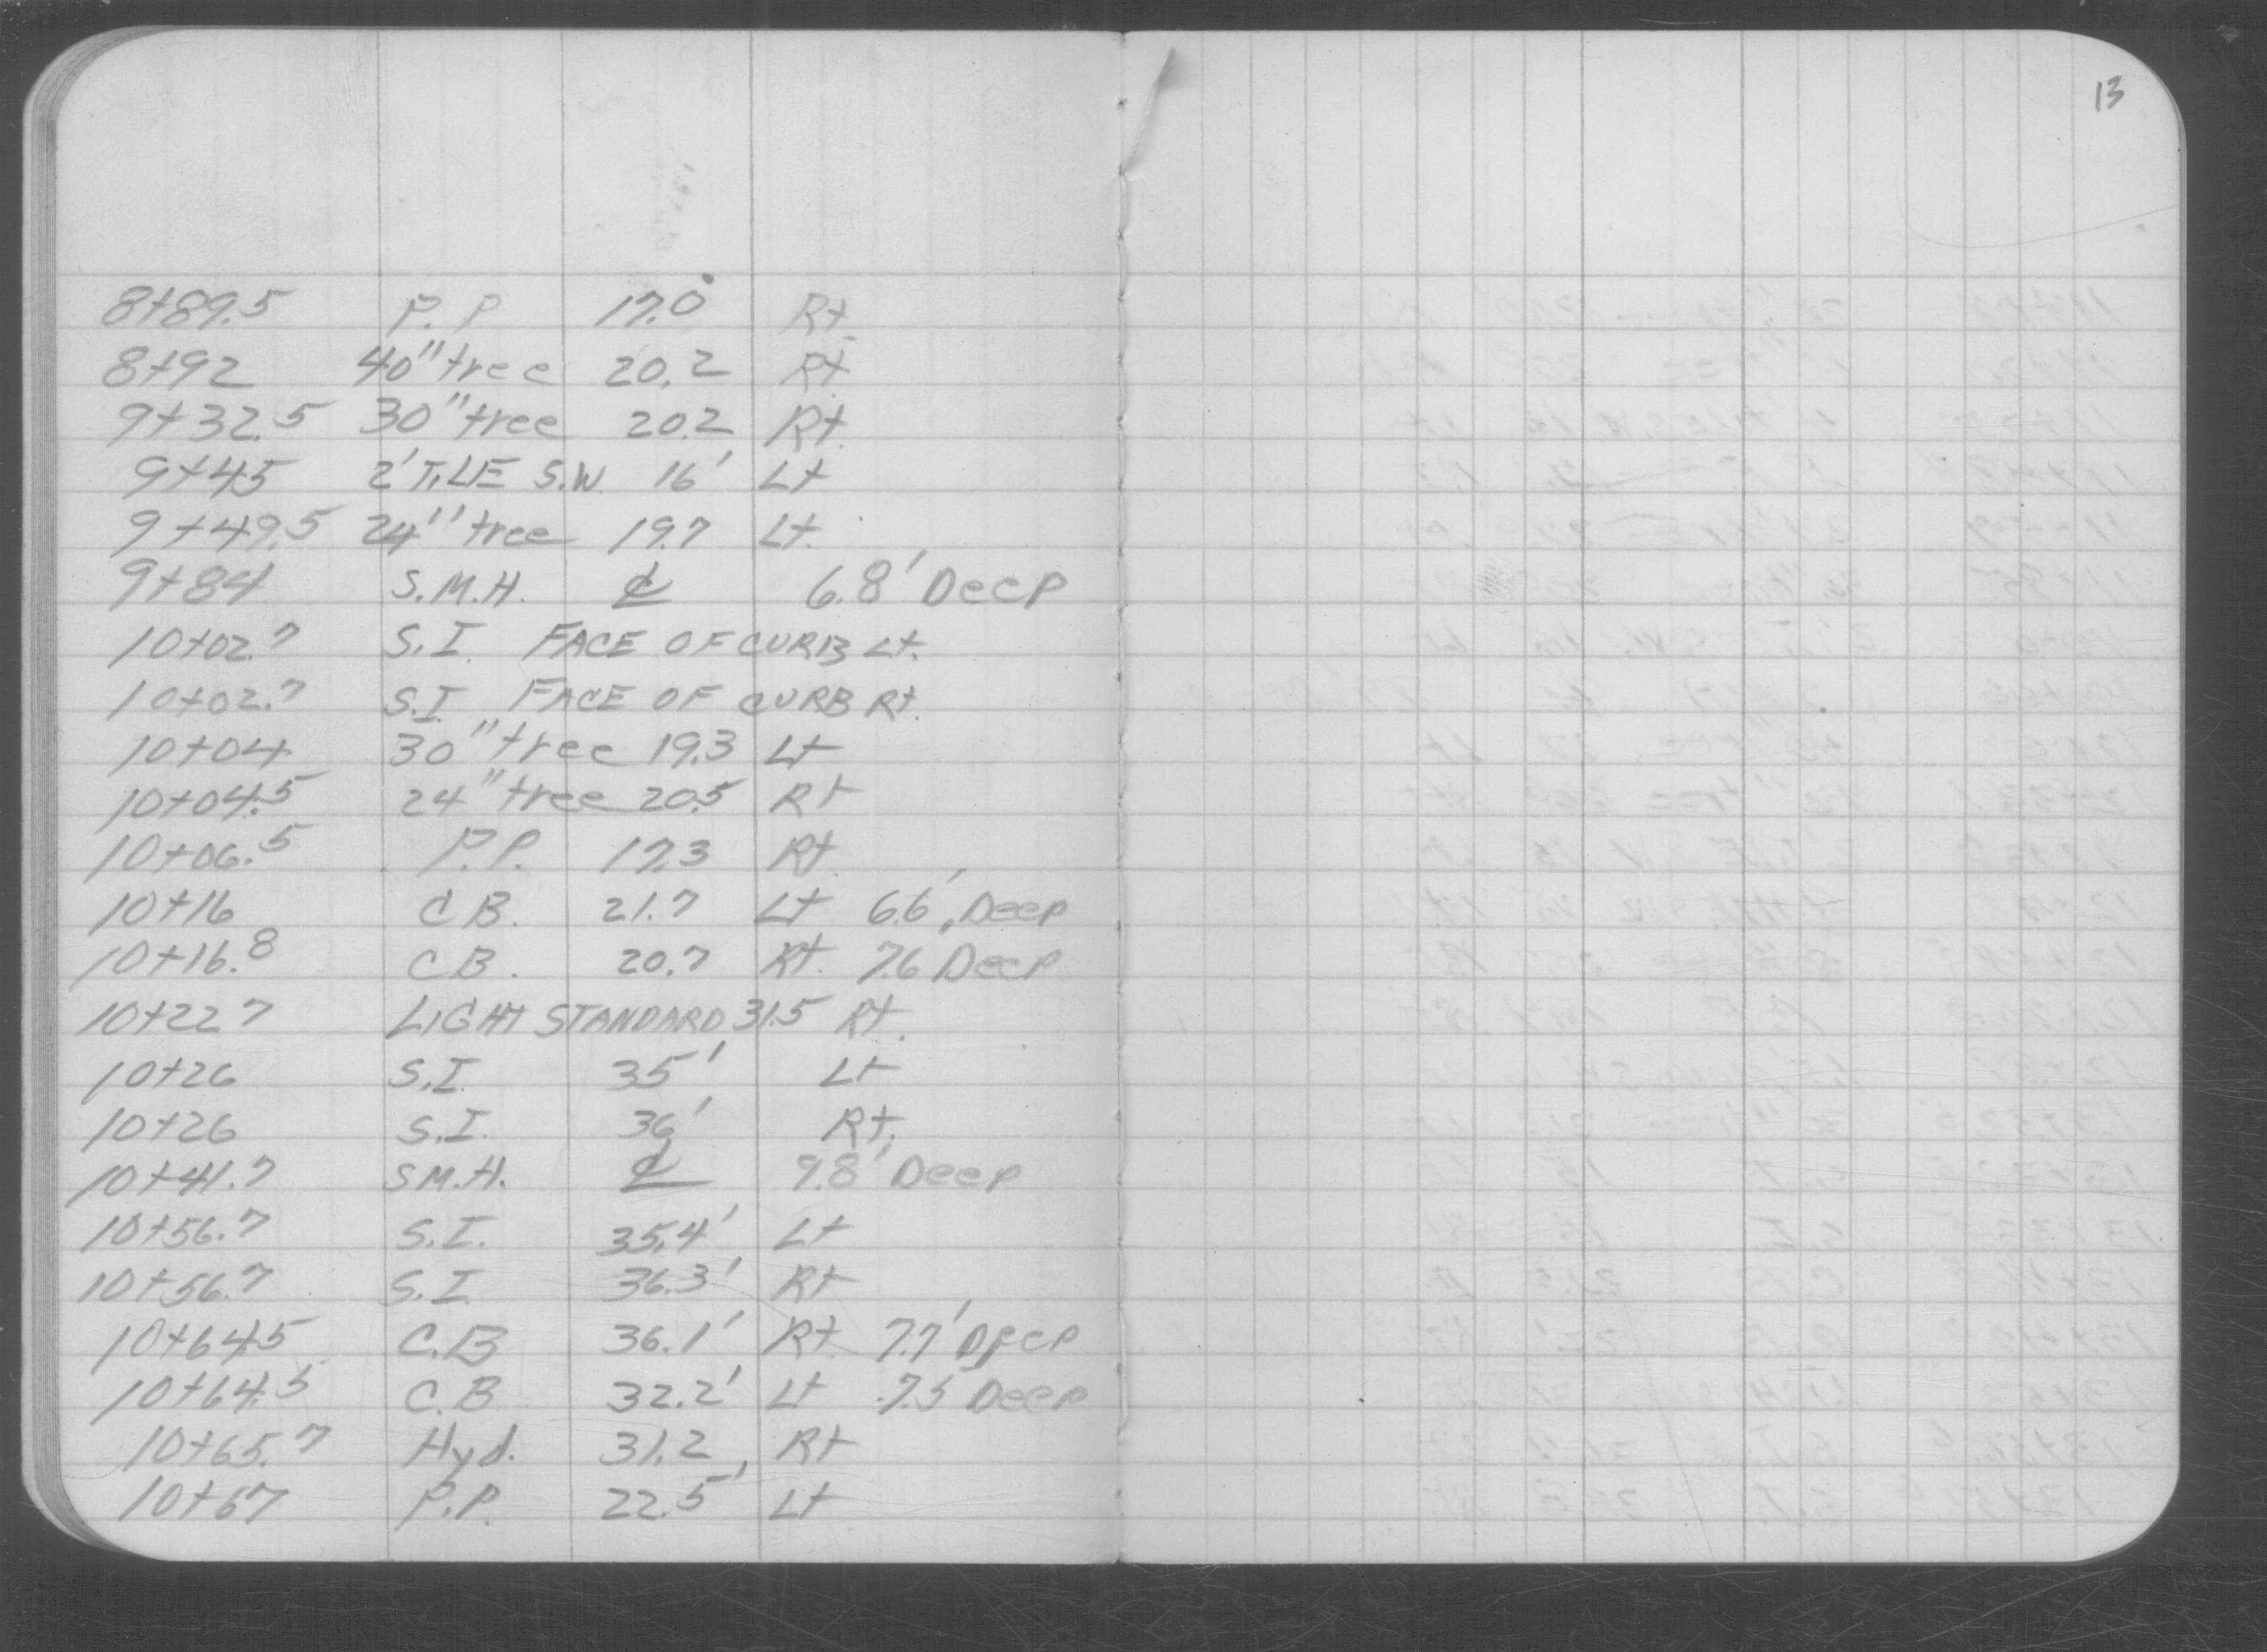 13
8+89.5 P.P 17.0 Rt.
8+92 40" tree 20.2 Rt.
9+32.5 30" tree 20.2 Rt.
9+45 2' TILE S.W. 16' Lt
9+49.5 24" tree 19.7 Lt.
9+84 S.M.H. ℄ 6.8' Deep
10+02.7 S.I. FACE OF CURB Lt.
10+02.7 S.I FACE OF CURB Rt.
10+04 30" tree 19.3 Lt
10+04.5 24" tree 20.5 Rt
10+06.5 P.P. 17.3 Rt.
10+16 C B. 21.7 Lt 6.6' Deep
10+16.8 C B. 20.7 Rt. 7.6 Deep
10+22.7 LIGHT STANDARD 31.5 Rt.
10+26 S.I. 35' Lt
10+26 S.I. 36' Rt.
10+41.7 S M.H. ℄ 9.8' Deep
10+56.7 S.I. 35.4' Lt
10+56.7 S.I. 36.3' Rt
10+64.5 C.B 36.1' Rt 7.7' Deep
10+64.5 C.B 32.2' Lt 7.5' Deep
10+65.7 Hyd. 31.2 Rt
10+67 P.P. 22.5' Lt